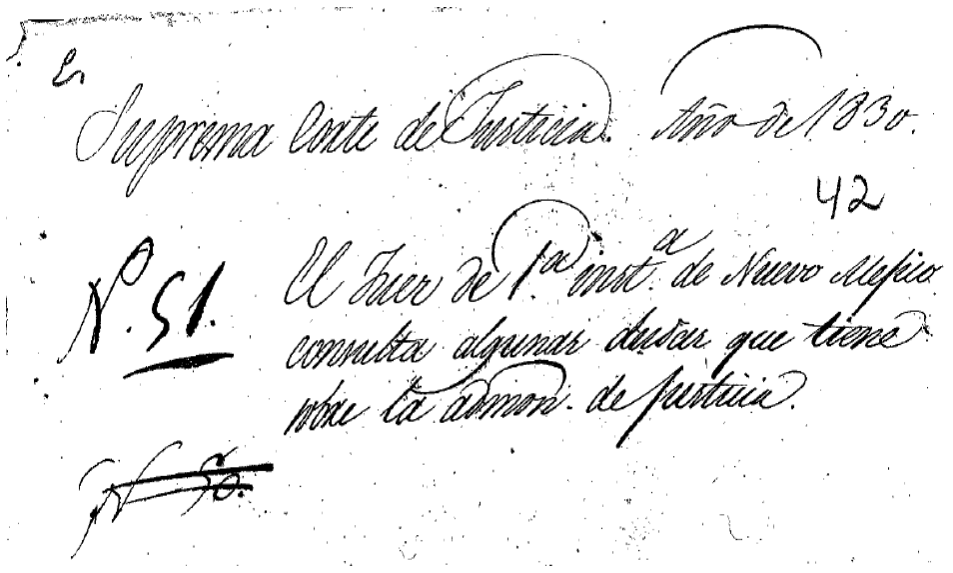 Suprema Corte de Justicia. Año de 1830.
42
N.º 51. El Juez de 1.ª inst.ª de Nuevo Mejico
consulta algunas dudas que tiene
sobre la admon. de justicia.
N 50.